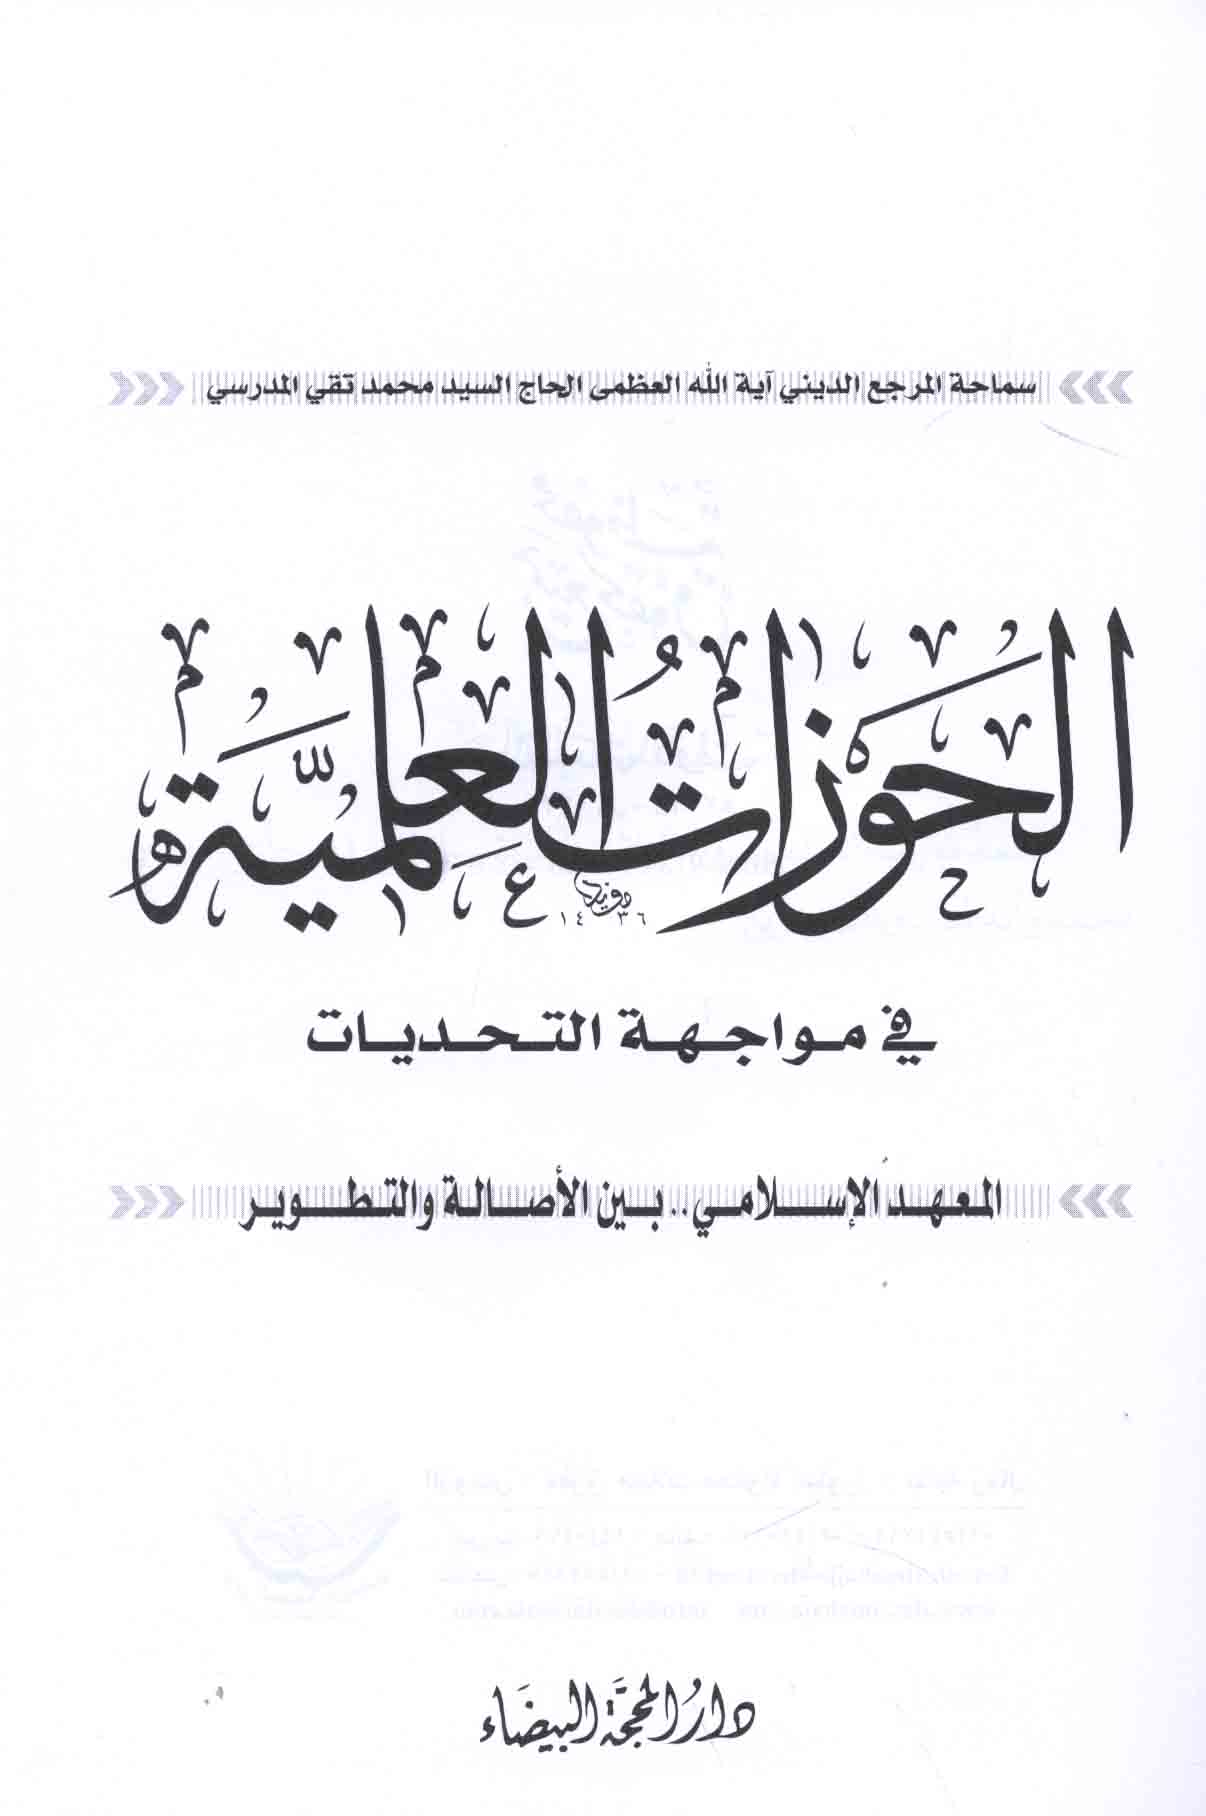 سماحة المرجع الديني آية الله العظمى الحاج السيد محمد تقي المدرسي
الحَوزاتُ العِلميَّة
١٤٣٦
في مواجهة التحديات
المعهد الإسلامي.. بين الأصالة والتطوير
دارُ المحجَّة البيضَاء